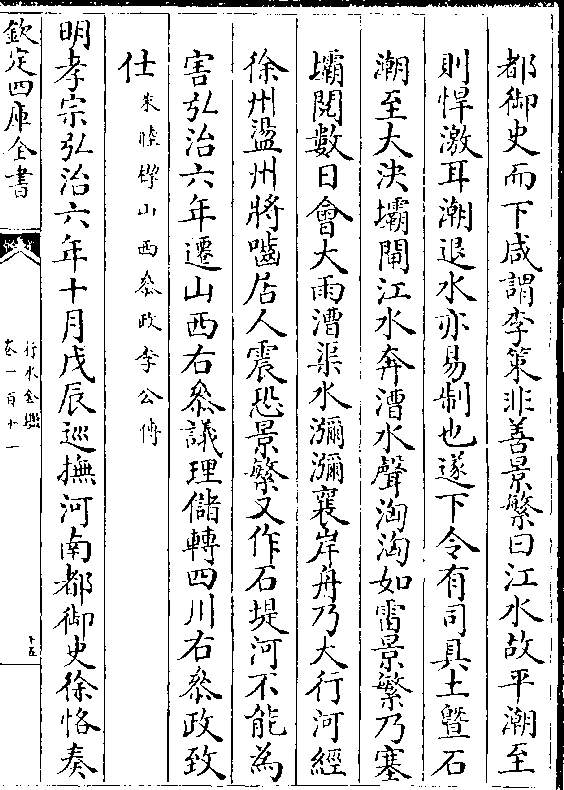 都御史而下咸謂李策非善景繁曰江水故平潮至
則悍激耳潮退水亦易制也遂下令有司具土曁石
潮至大決壩閘江水奔漕水聲洶洶如雷景繁乃塞
壩閱數日會大雨漕渠水瀰瀰襄岸舟乃大行河經
徐州溢州將嚙居人震恐景繁又作石堤河不能為
害弘治六年遷山西右叅議理儲轉四川右叅政致
仕朱睦㮮山西叅政李公傳
明孝宗弘治六年十月戊辰巡撫河南都御史徐恪奏
欽定四庫全書
行水金鑑
卷一百十一
十五